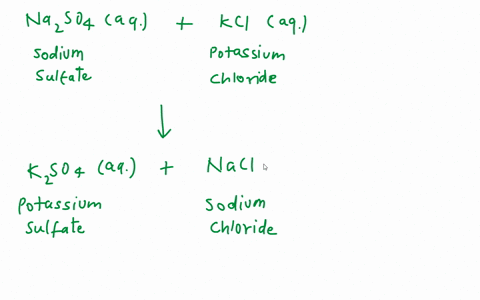 Na2SO4 (aq.) + KCl (aq.)
Sodium Potassium
Sulfate Chloride
↓
K2SO4 (aq.) + NaCl
Potassium Sodium
Sulfate Chloride